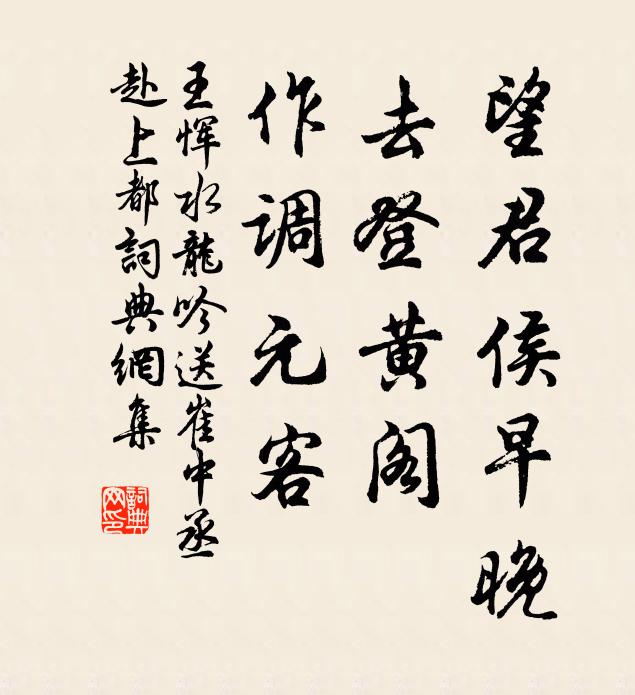 望君侯早晚
去登黄阁
作调元客
王恽水龍吟送崔中丞
赴上都詞典網集
詞典網印